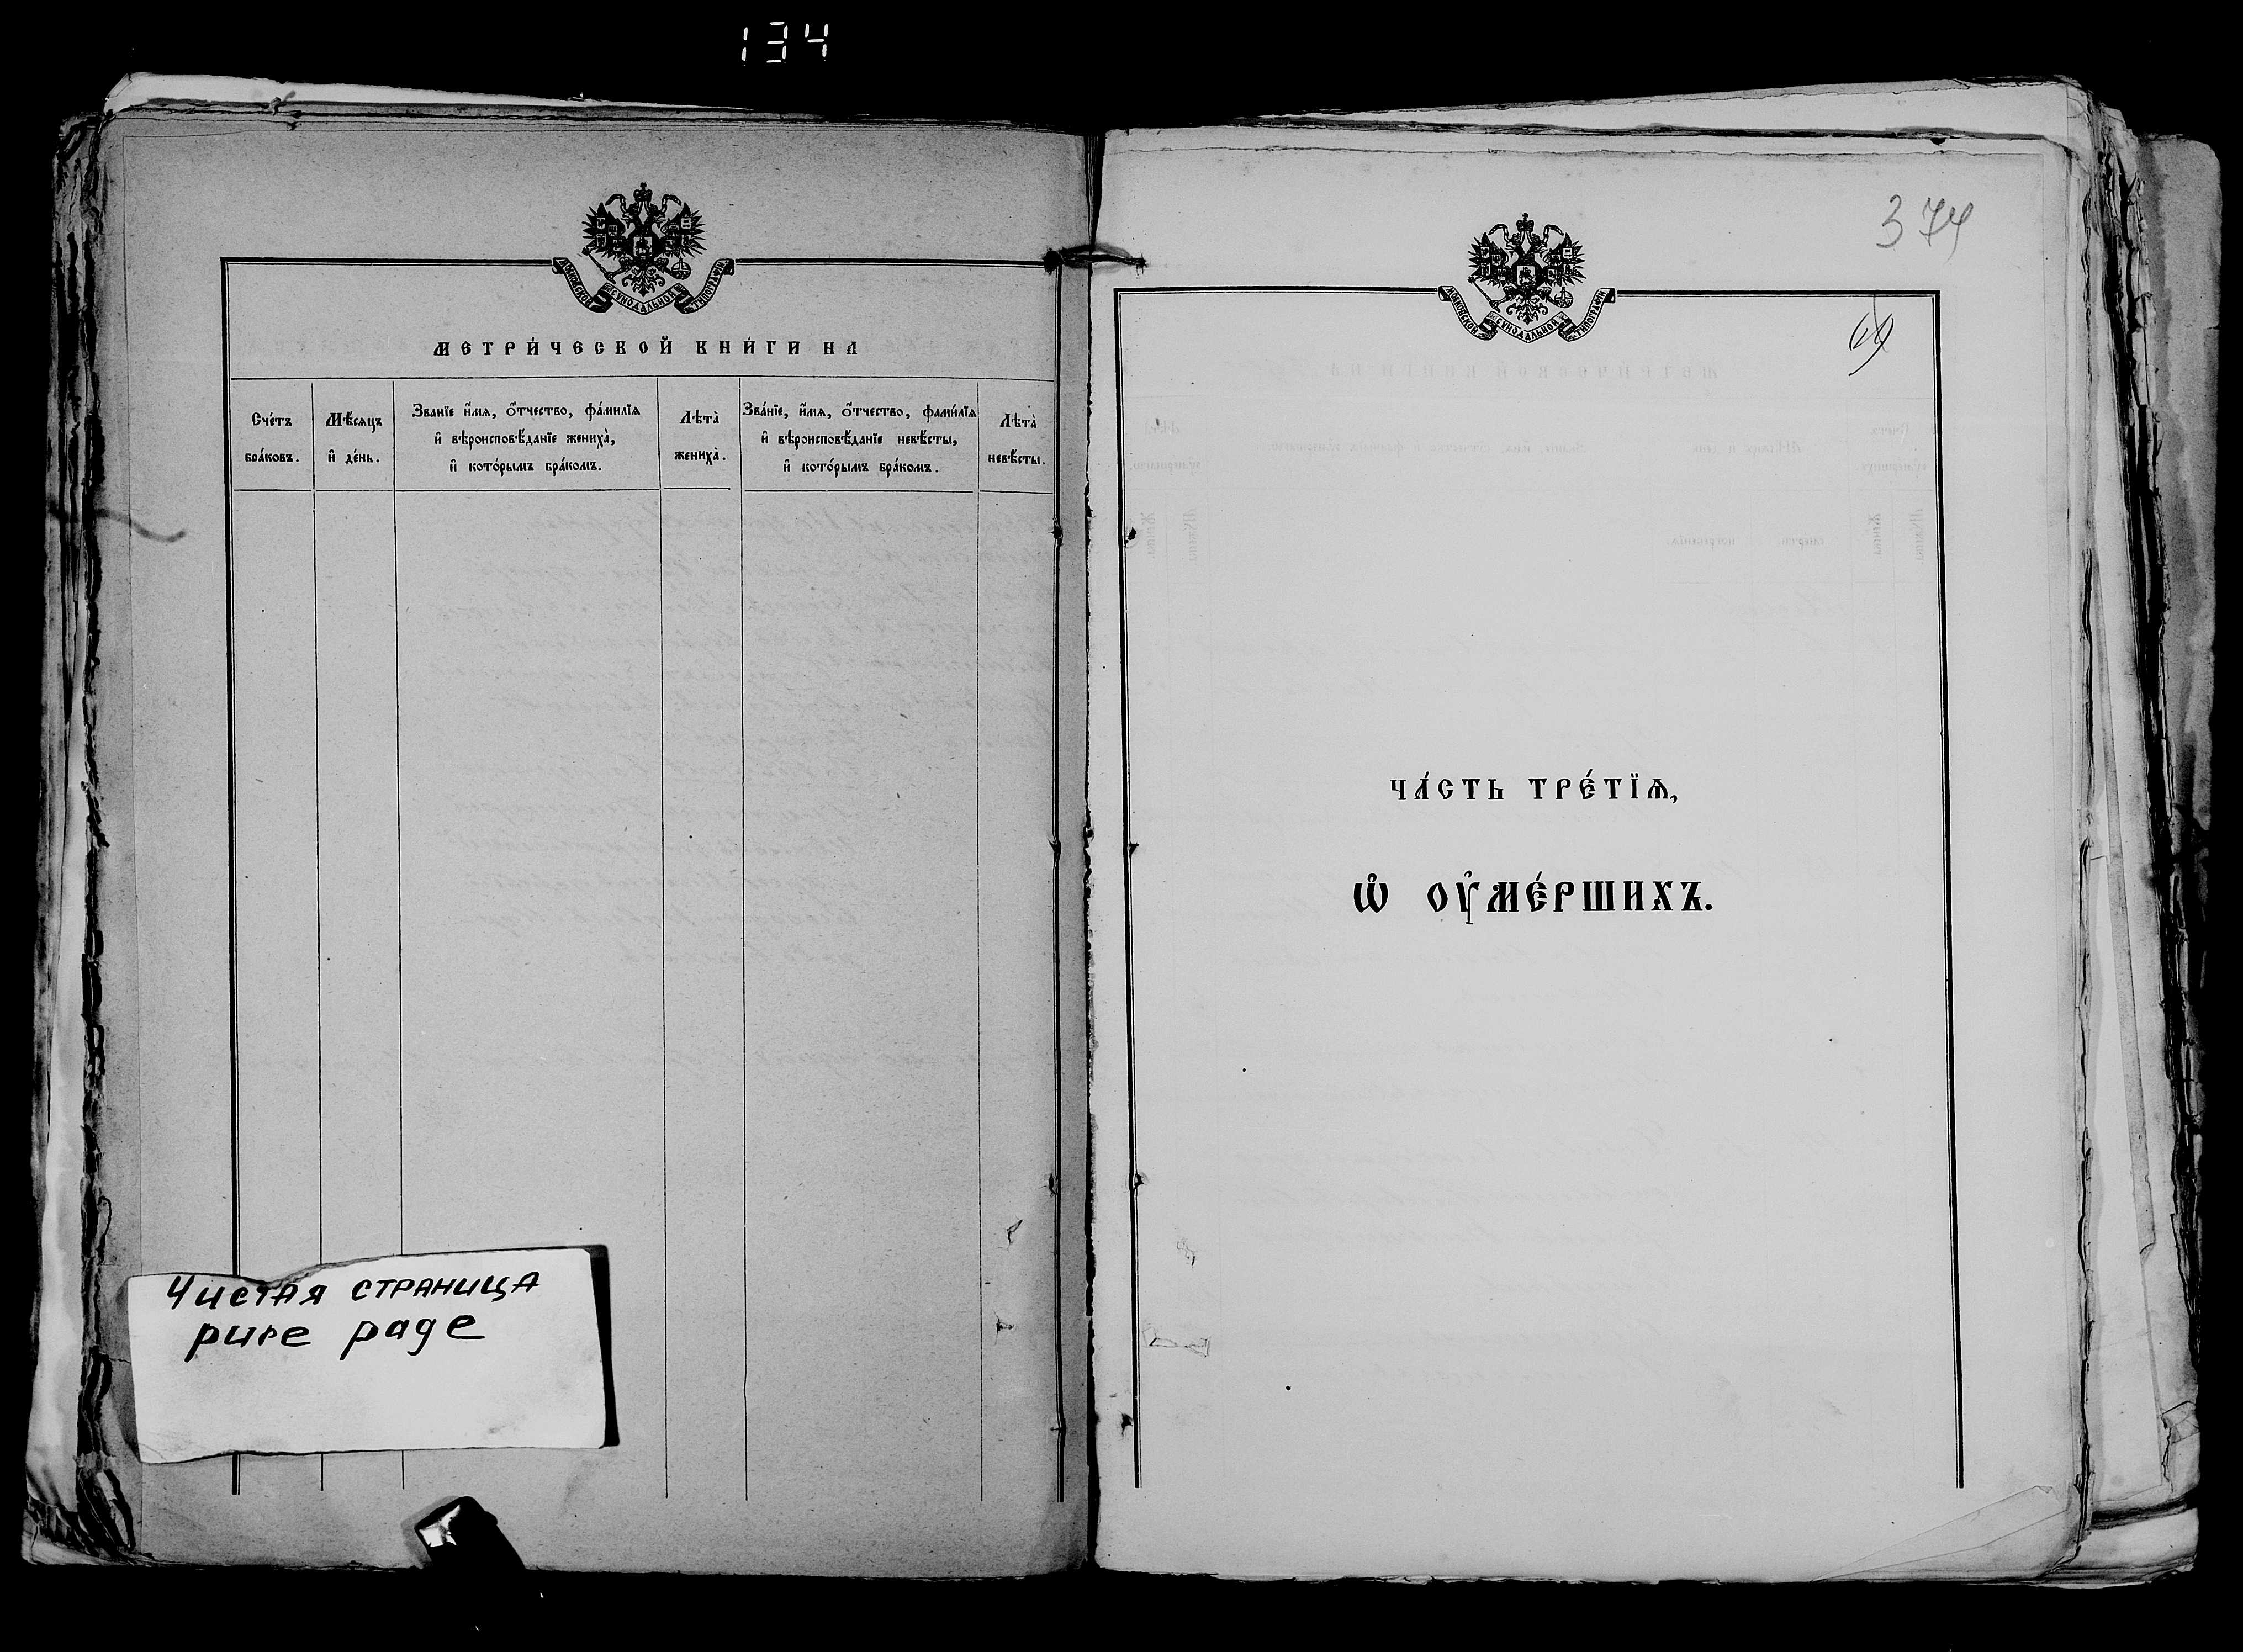 134
МОСКОВСКОЙ СѴНОДАЛЬНОЙ ТИПОГРАФІИ
МЕТРИ́ЧЕСКОЙ КНИ́ГИ НА
Сче́тъ
бра́ковъ.
Мѣ́сяцъ
и҆ де́нь.
Зва́нїе и҆́мѧ, ѻ҆́тчество, фами́лїѧ
и҆ вѣроисповѣ́данїе жениха̀,
и҆ кото́рымъ бра́комъ.
Лѣта̀
жениха̀.
Зва́нїе, и҆́мѧ, ѻ҆́тчество, фами́лїѧ
и҆ вѣроисповѣ́данїе невѣ́сты,
и҆ кото́рымъ бра́комъ.
Лѣта̀
невѣ́сты.
Чистая страница
pure page
374
МОСКОВСКОЙ СѴНОДАЛЬНОЙ ТИПОГРАФІИ
ЧА́СТЬ ТРЕ́ТЇѦ,
Ѡ҆ ОУ҆МЕ́РШИХЪ.